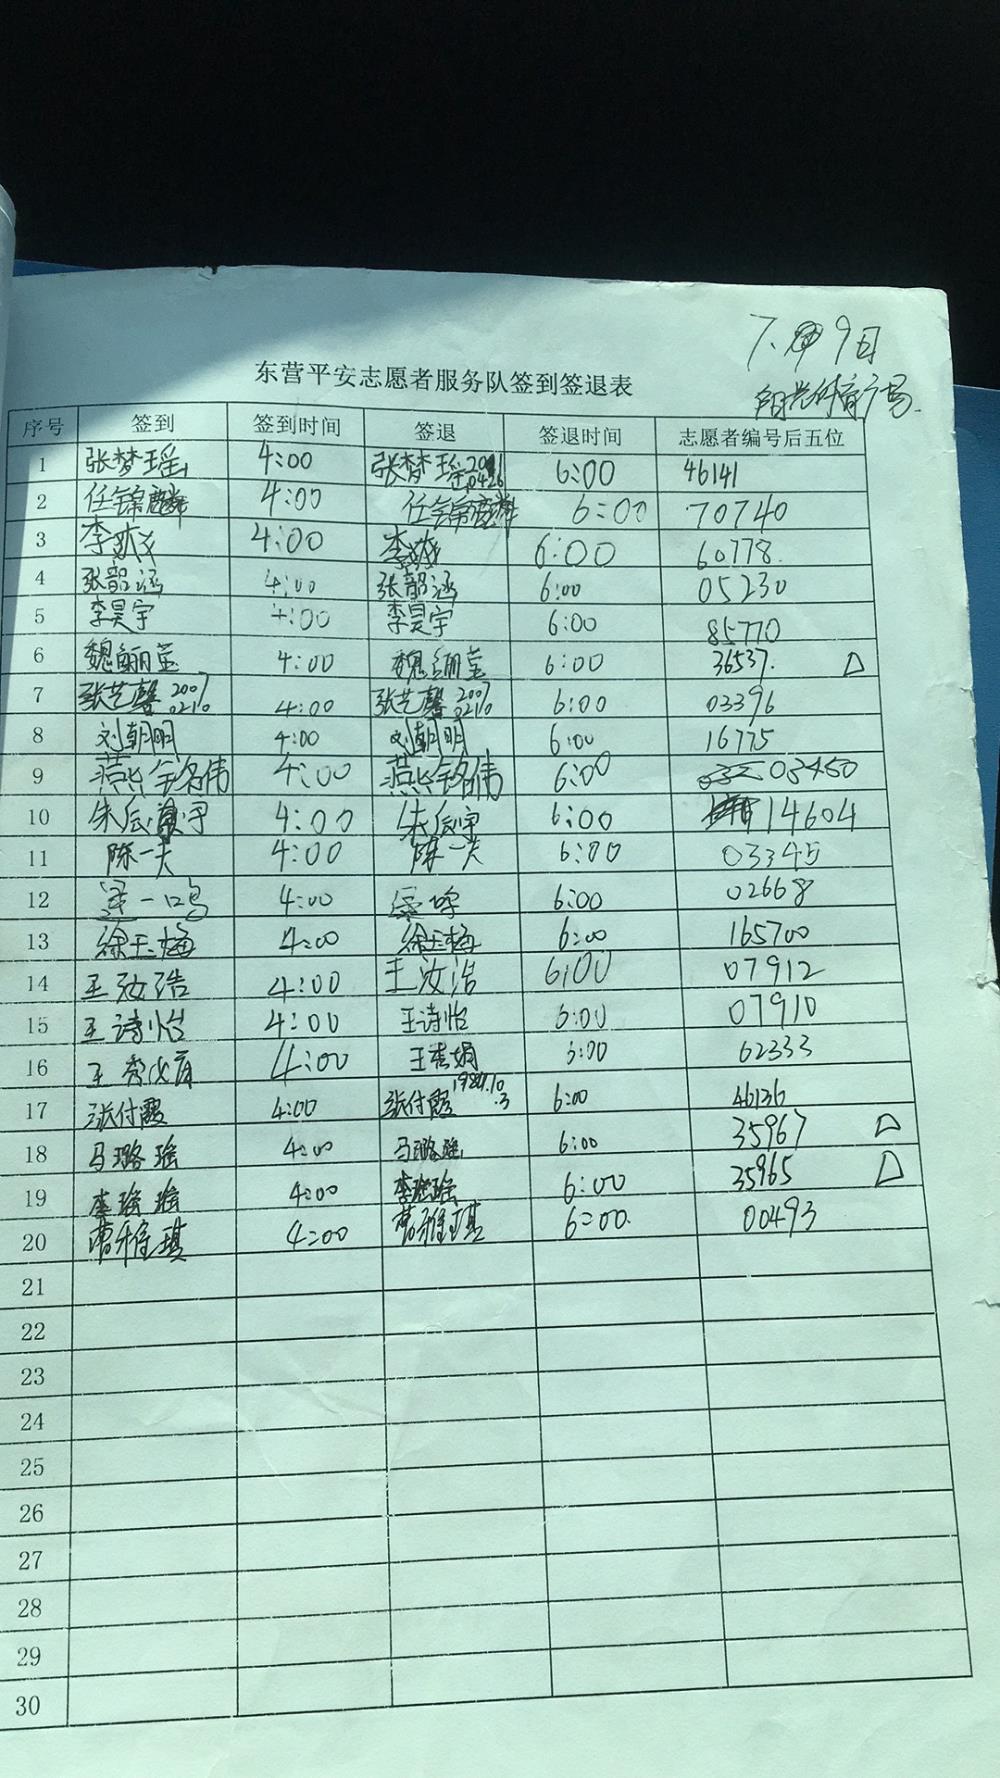 7.9日
阳光体育广场.
东营平安志愿者服务队签到签退表
序号 签到 签到时间 签退 签退时间 志愿者编号后五位
1 张梦瑶 4:00 张梦瑶 6:00 46141
2 任锦麟 4:00 任锦麟 6:00 70740
3 李爽 4:00 李爽 6:00 60778.
4 张韶涵 4:00 张韶涵 6:00 05230
5 李昊宇 4:00 李昊宇 6:00 85770
6 魏俪莹 4:00 魏俪莹 6:00 36537. △
7 张艺馨 2007 0210 4:00 张艺馨 2007 0210 6:00 03396
8 刘朝明 4:00 刘朝明 6:00 16775
9 燕铭伟 4:00 燕铭伟 6:00 03450
10 朱辰宇 4:00 朱辰宇 6:00 14604
11 陈一夫 4:00 陈一夫 6:00 03345
12 一鸣 4:00 6:00 02668
13 徐玉梅 4:00 徐玉梅 6:00 165700
14 王汝浩 4:00 王汝浩 6:00 07912
15 王诗怡 4:00 王诗怡 6:00 07910
16 王秀娟 4:00 王秀娟 6:00 62333
17 张付霞 4:00 张付霞 1984.10.3 6:00 46136
18 马璐瑶 4:00 马璐瑶 6:00 35967 △
19 李瑶瑶 4:00 李瑶瑶 6:00 35965 △
20 曹雅琪 4:00 曹雅琪 6:00. 00493
21
22
23
24
25
26
27
28
29
30